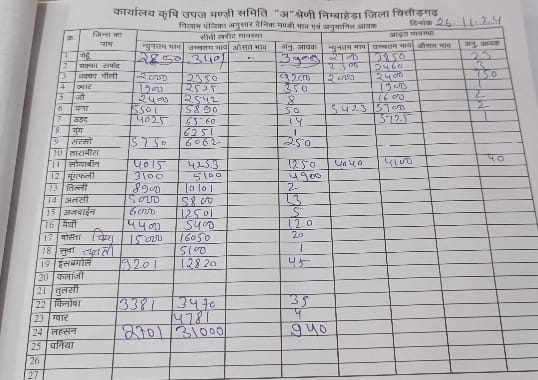 कार्यालय कृषि उपज मण्डी समिति "अ" श्रेणी निम्बाहेड़ा जिला चित्तौड़गढ़
निलाम पंजिका अनुसार दैनिक मण्डी भाव एवं अनुमानित आवक दिनांक 26.11.24
क्र. जिन्स का नाम सीधी खरीद व्यवस्था आड़त व्यवस्था
न्यूनतम भाव उच्चतम भाव औसत भाव अनु. आवक न्यूनतम भाव उच्चतम भाव औसत भाव अनु. आवक
1 गेहूं 2850 3401 3900 2850 23
2 मक्का सफेद 2300 2460 3
3 मक्का पीली 2000 2350 9200 2000 2400 750
4 ज्वार 1900 2525 350 1900 1
5 जौ 2400 2542 8 1600 2
6 चना 5501 5890 50 5423 5700 2
7 उड़द 4025 6560 14 5725 1
8 मुंग 6251 1
9 सरसों 5750 6062 250
10 तारामीरा
11 सोयाबीन 4015 4253 1250 4040 4100 40
12 मूंगफली 3100 5100 4900
13 तिल्ली 8900 10101 2
14 अलसी 5000 5800 13
15 अजवाईन 6000 12501 5
16 मैथी 4400 5400 120
17 पोस्ता 15000 16050 20
18 सुवा 5100 1
19 ईसबगोल 9201 12820 45
20 कलौंजी
21 तुलसी
22 किनोवा 3381 3470 35
23 ग्वार 4781 4
24 लहसन 2701 31000 940
25 धनिया
26
27